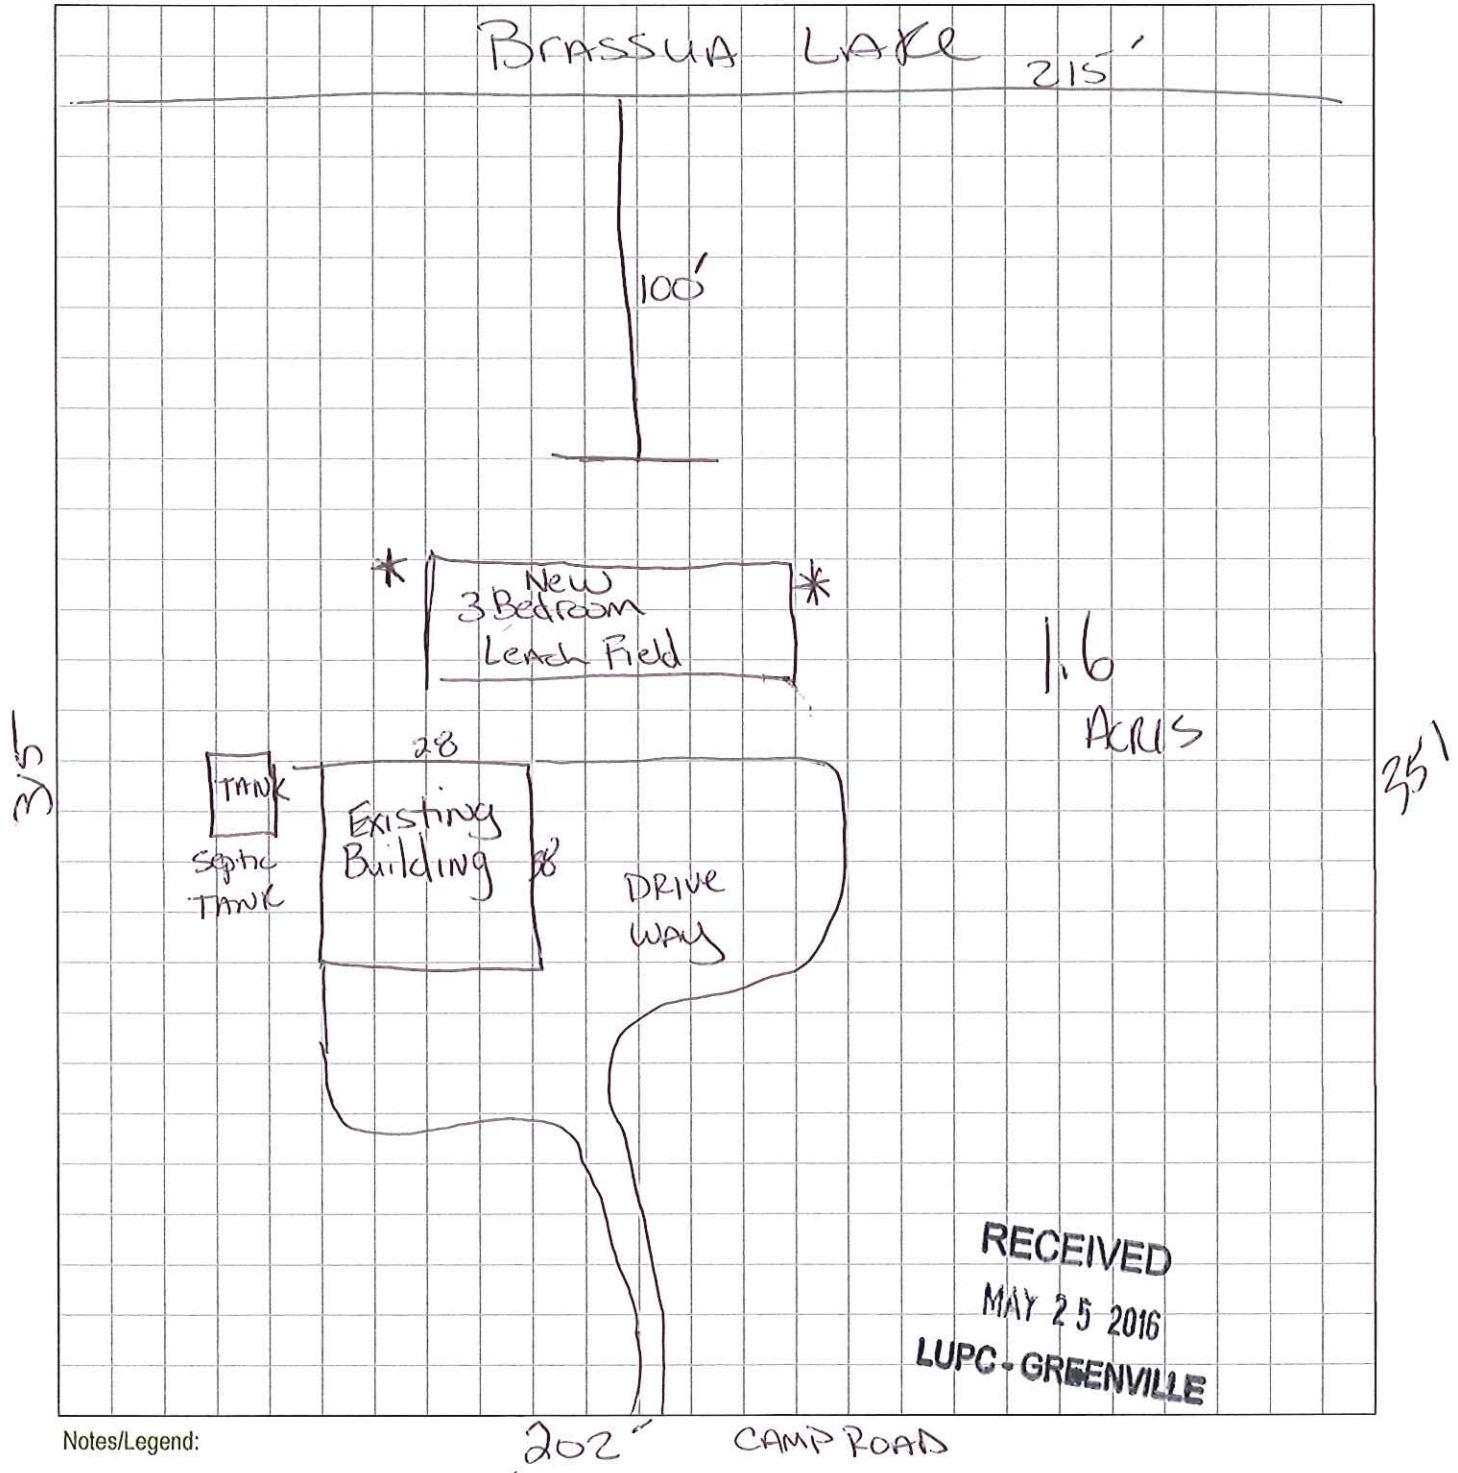 Brassua Lake
215'
100'
New
3 Bedroom
Leach Field
1.6
Acris
28
TANK
Existing
Building
Septic
TANK
DRIVE
WAY
RECEIVED
MAY 25 2016
LUPC - GREENVILLE
Notes/Legend:
202'
CAMP ROAD